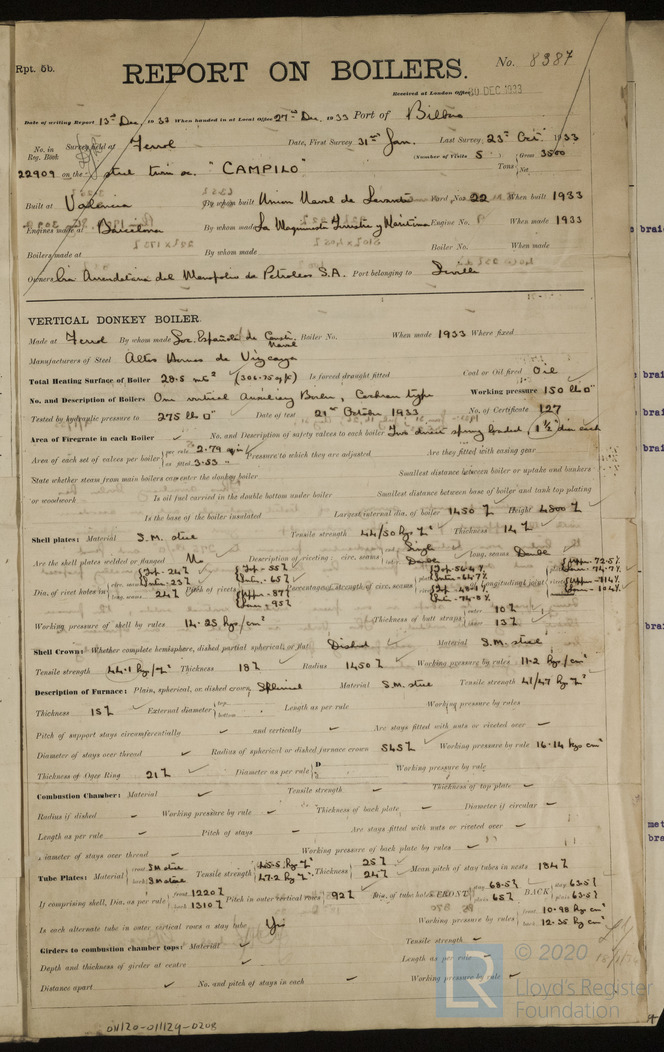 Rpt. 5b.
REPORT ON BOILERS.
No. 8387
Received at London Office 30 DEC 1933
Date of writing Report 13th Dec. 1933 When handed in at Local Office 27th Dec. 1933 Port of Bilbao
No. in Reg. Book Survey held at Ferrol Date, First Survey 31st Jan. Last Survey, 23rd Oct. 1933
(Number of Visits 5 Gross 3500
22909 on the steel twin sc. "CAMPILO" Tons Net
Built at Valencia By whom built Union Naval de Levante Yard No. 22 When built 1933
Engines made at Barcelona By whom made La Maquinista Terrestre y Maritima Engine No. When made 1933
Boilers made at By whom made Boiler No. When made
Owners Cia Arrendataria del Monopolio de Petroleos S.A. Port belonging to Sevilla
VERTICAL DONKEY BOILER.
Made at Ferrol By whom made Soc. Española de Const. Naval Boiler No. When made 1933 Where fixed
Manufacturers of Steel Altos Hornos de Vizcaya
Total Heating Surface of Boiler 28.5 mts² (306.75 sq/f) Is forced draught fitted Coal or Oil fired Oil
No. and Description of Boilers One vertical Auxiliary Boiler, Cochran type Working pressure 150 lb □"
Tested by hydraulic pressure to 275 lb □" Date of test 21st October 1933 No. of Certificate 127
Area of Firegrate in each Boiler No. and Description of safety valves to each boiler Two direct spring loaded, 1½" dia each
Area of each set of valves per boiler per rule 2.79 as fitted 3.53 " Pressure to which they are adjusted Are they fitted with easing gear
State whether steam from main boilers can enter the donkey boiler Smallest distance between boiler or uptake and bunkers
or woodwork Is oil fuel carried in the double bottom under boiler Smallest distance between base of boiler and tank top plating
Is the base of the boiler insulated Largest internal dia. of boiler 1450 Height 4500
Shell plates: Material S.M. steel Tensile strength 44/50 Kg Thickness 14
Are the shell plates welded or flanged No Description of riveting: circ. seams Single Double long. seams Double
Dia. of rivet holes in circ. seams 24 23 long. seams 24 Pitch of rivets 55 65 87 95 Percentage of strength of circ. seams 56.4% 64.7% of Longitudinal joint 72.5% 74.7%
Working pressure of shell by rules 14.25 kgs/cm² Thickness of butt straps outer 10 inner 13
Shell Crown: Whether complete hemisphere, dished partial spherical, or flat Dished Material S.M. steel
Tensile strength 44.1 kg Thickness 18 Radius 1450 Working pressure by rules 11.2 kgs/cm²
Description of Furnace: Plain, spherical, or dished crown Spherical Material S.M. steel Tensile strength 41/47 kg
Thickness 15 External diameter top bottom Length as per rule Working pressure by rules
Pitch of support stays circumferentially and vertically Are stays fitted with nuts or riveted over
Diameter of stays over thread Radius of spherical or dished furnace crown 545 Working pressure by rule 16.14 kgs cm²
Thickness of Ogee Ring 21 Diameter as per rule D d Working pressure by rule
Combustion Chamber: Material Tensile strength Thickness of top plate
Radius if dished Working pressure by rule Thickness of back plate Diameter if circular
Length as per rule Pitch of stays Are stays fitted with nuts or riveted over
Diameter of stays over thread Working pressure of back plate by rules
Tube Plates: Material front S.M. steel back S.M. steel Tensile strength 45.5 kg 47.2 kg Thickness 25 24 Mean pitch of stay tubes in nests 184
If comprising shell, Dia. as per rule front 1220 back 1310 Pitch in outer vertical rows 92 Dia. of tube holes FRONT stay 68.5 plain 65 BACK stay 63.5 plain 63.5
Is each alternate tube in outer vertical rows a stay tube Yes Working pressure by rules front 10.98 kgs cm² back 12.35 kg cm²
Girders to combustion chamber tops: Material Tensile strength
Depth and thickness of girder at centre Length as per rule
Distance apart No. and pitch of stays in each Working pressure by rule
© 2020
Lloyd's Register
Foundation
LR